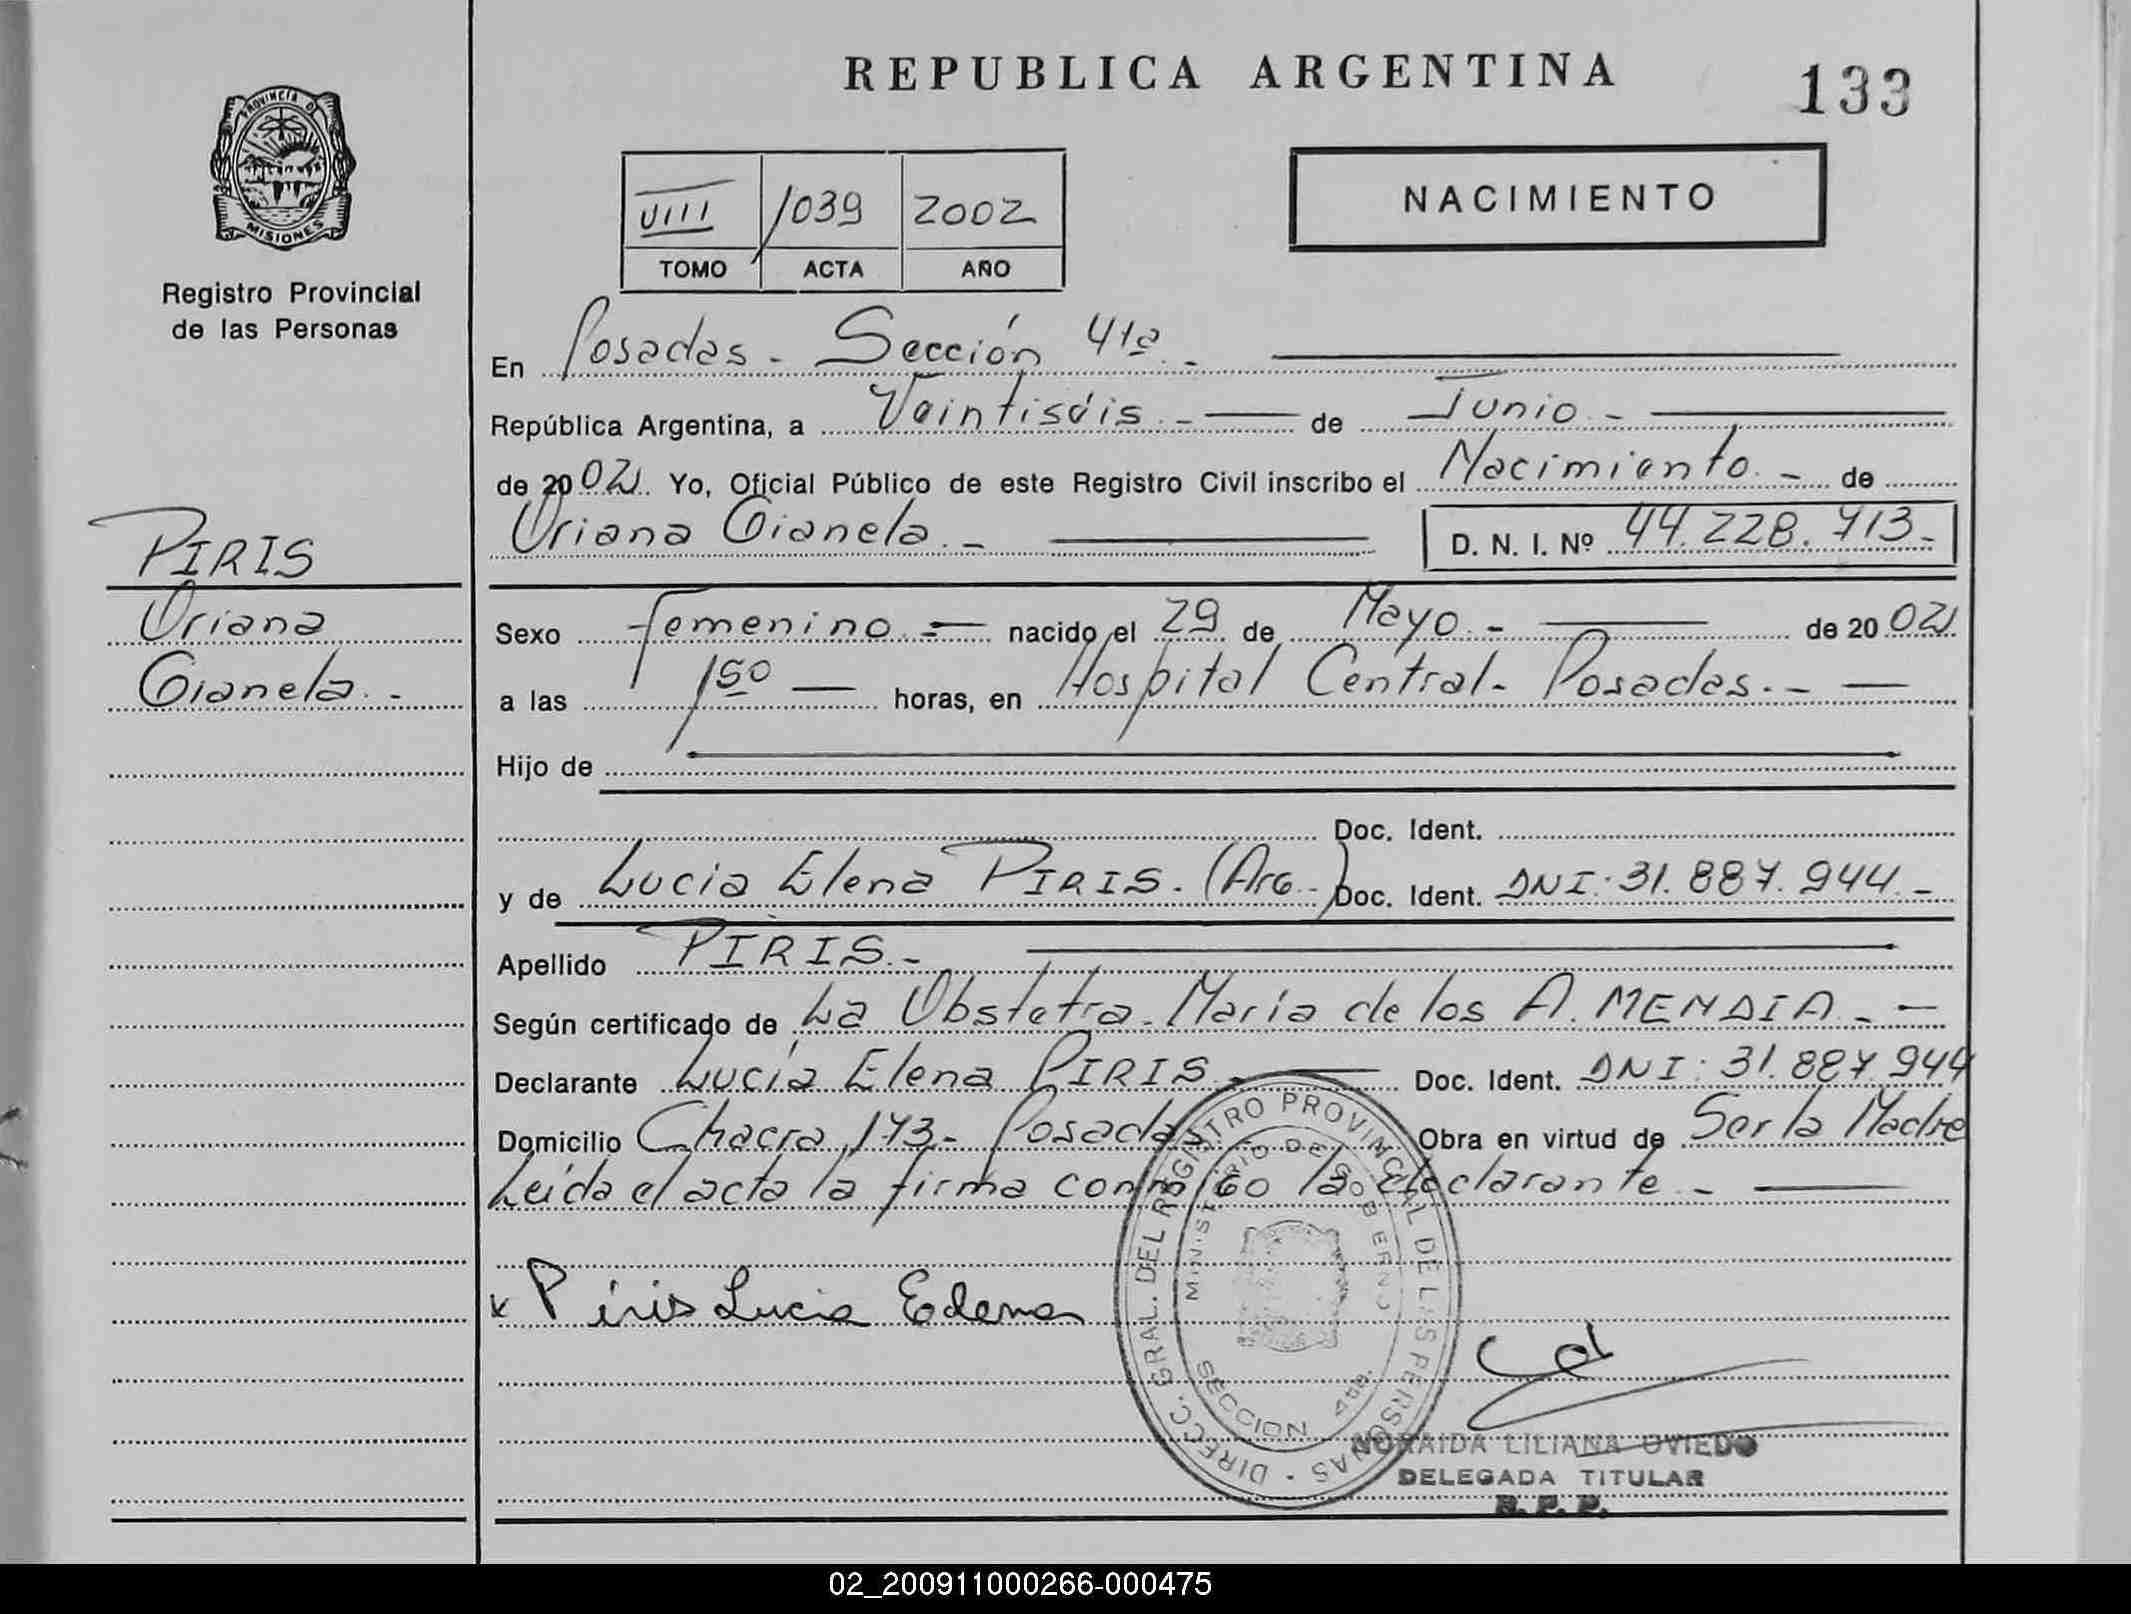 REPUBLICA ARGENTINA
133
PROVINCIA DE
MISIONES
Registro Provincial
de las Personas
VIII 1039 2002
TOMO ACTA AÑO
NACIMIENTO
En Posadas - Sección 41a -
República Argentina, a Veintiséis - de Junio -
de 2002 Yo, Oficial Público de este Registro Civil inscribo el Nacimiento - de
Oriana Gianela - D. N. I. Nº 44.228.713-
PIRIS
Oriana
Gianela. -
Sexo Femenino - nacido el 29 de Mayo - de 2002
a las 1 50 — horas, en Hospital Central - Posadas. - —
Hijo de
Doc. Ident.
y de Lucia Elena PIRIS. (Arg.-) Doc. Ident. DNI: 31.887.944 -
Apellido PIRIS. -
Según certificado de La Obstetra - María de los A. MENDIA - —
Declarante Lucía Elena PIRIS - Doc. Ident. DNI: 31.887.944
Domicilio Chacra 173 - Posadas Obra en virtud de Ser la Madre
Leída el acta la firma conmigo la declarante - —
x Piris Lucia Elena
DIRECC. GRAL. DEL REGISTRO PROVINCIAL DE LAS PERSONAS
MINISTERIO DE GOBIERNO
SECCION
NORAIDA LILIANA OVIEDO
DELEGADA TITULAR
R. P. P.
02_200911000266-000475